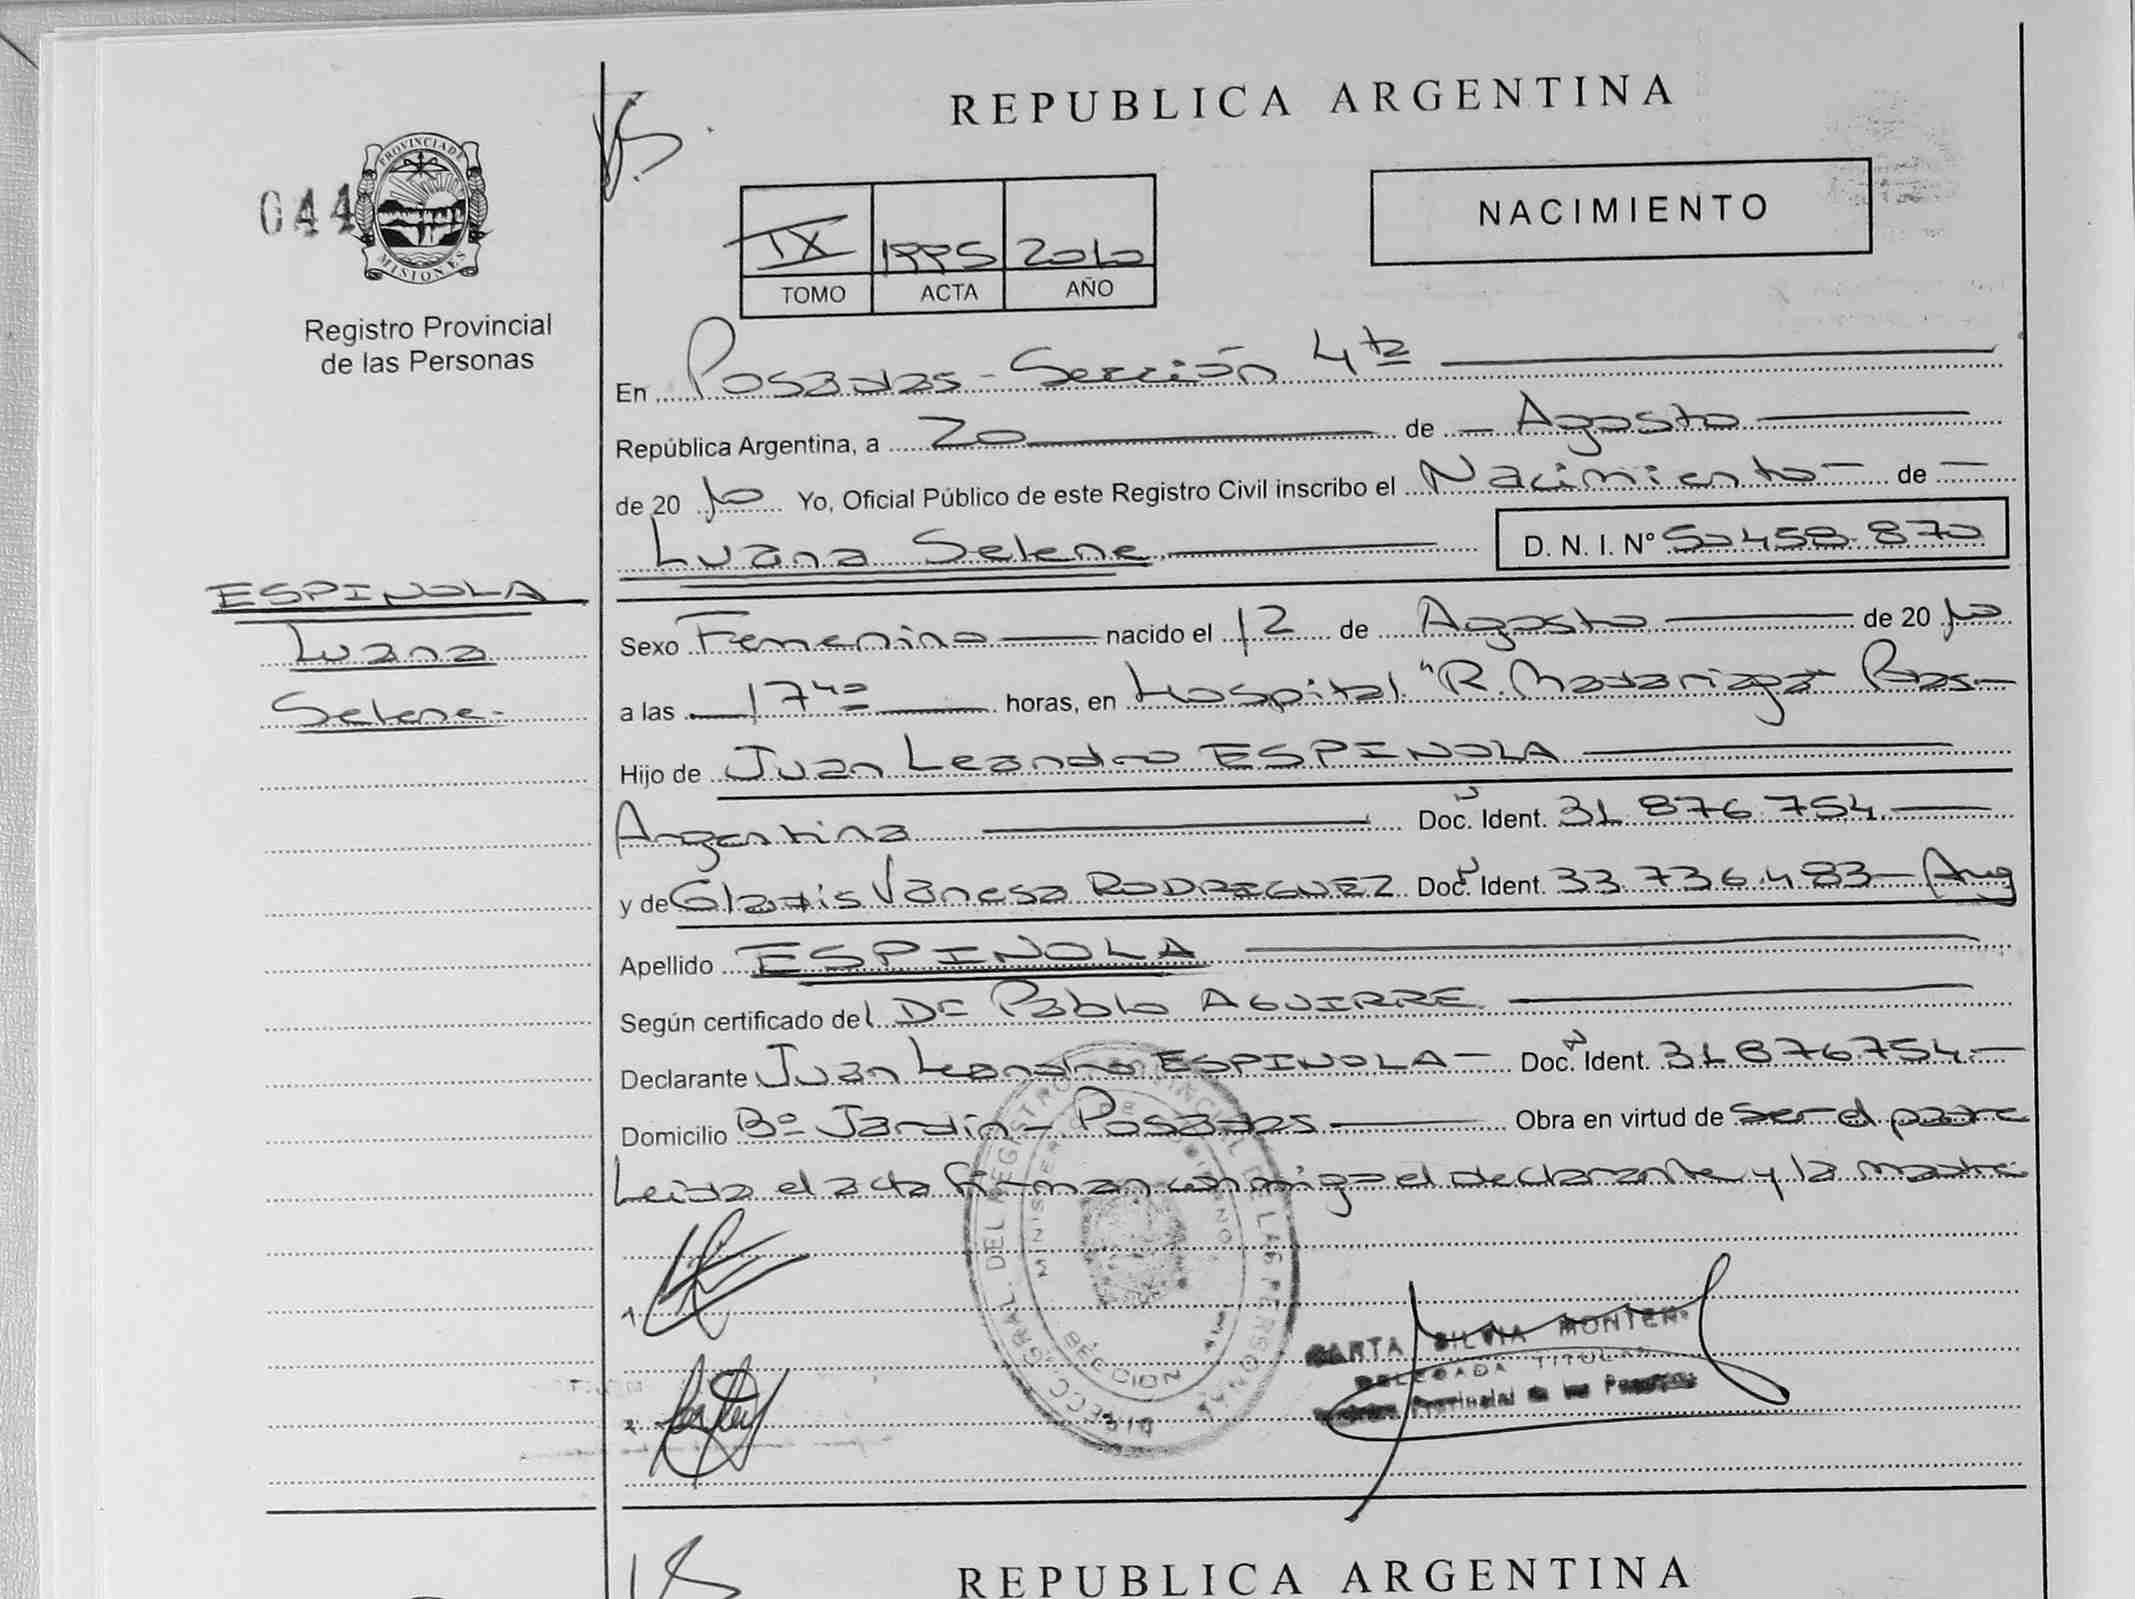 REPUBLICA ARGENTINA
044
PROVINCIA DE MISIONES
Registro Provincial
de las Personas
NACIMIENTO
IX 1995 2010
TOMO ACTA AÑO
En Posadas - Sección 4ta
República Argentina, a 20 de Agosto
de 2010 Yo, Oficial Público de este Registro Civil inscribo el Nacimiento de
Luana Selene D. N. I. Nº 50.458.870
ESPINOLA
Luana
Selene
Sexo Femenino nacido el 12 de Agosto de 2010
a las 17 40 horas, en Hospital "R. Madariaga" Pdas
Hijo de Juan Leandro ESPINOLA
Argentina Doc. Ident. 31.876.754
y de Gladis Vanesa RODRIGUEZ Doc. Ident. 33.736.483 - Arg
Apellido ESPINOLA
Según certificado del Dr Pablo AGUIRRE
Declarante Juan Leandro ESPINOLA - Doc. Ident. 31.876.754
Domicilio Bº Jardín - Posadas Obra en virtud de ser el padre
Leida el acta firman conmigo el declarante y la madre
DIRECC. GRAL. DEL REGISTRO PROVINCIAL DE LAS PERSONAS
SECCION
1.
2.
SILVIA MONTER
DELEGADA TITULAR
Provincial de las Personas
REPUBLICA ARGENTINA